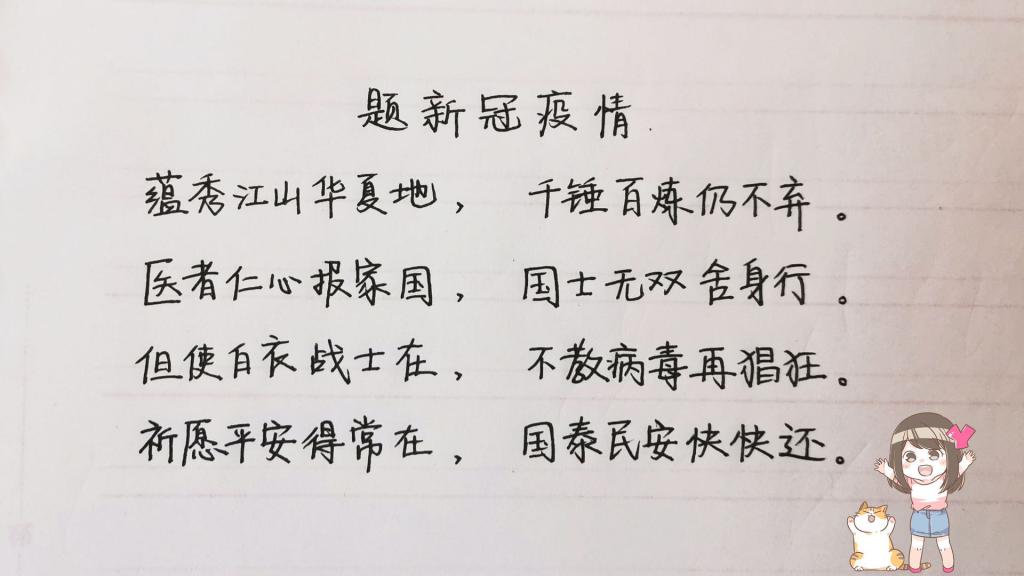 题新冠疫情
蕴秀江山华夏地，千锤百炼仍不弃。
医者仁心报家国，国士无双舍身行。
但使白衣战士在，不教病毒再猖狂。
祈愿平安得常在，国泰民安快快还。